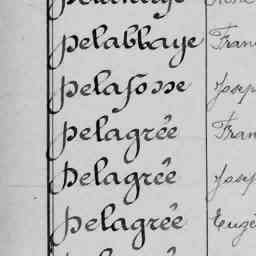 Delabbaye Fran
Delafosse Josep
Delagrée Fran
Delagrée Josep
Delagrée Eugè